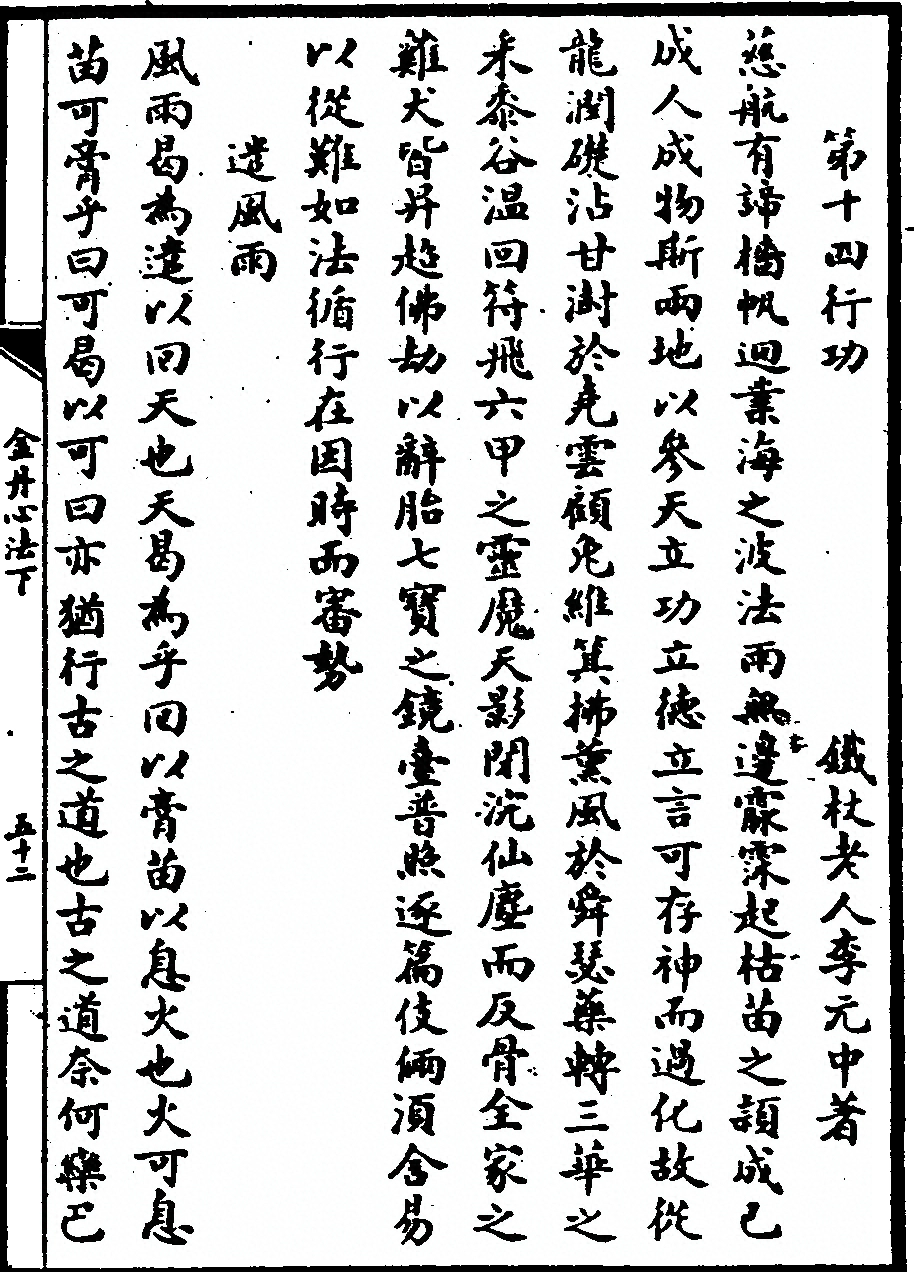 第十四行功 鐵杖老人李元中著
慈航有諦檣帆迴業海之波法雨無邊霡霂起枯苗之頴成己
成人成物斯兩地以參天立功立德立言可存神而過化故從
龍潤礎沾甘澍於堯雲顧兎維箕拂薰風於舜瑟藥轉三華之
釆黍谷温回符飛六甲之靈魔天影閉浣仙塵而反骨全家之
雞犬皆昇超佛劫以辭胎七寶之鏡臺普照逐篇伎倆湏舍易
以從難如法循行在因時而審勢
遣風雨
風雨曷為遣以回天也天曷為乎回以膏苗以息火也火可息
苗可膏乎曰可曷以可曰亦猶行古之道也古之道奈何欒巴
金丹心法下
五十二